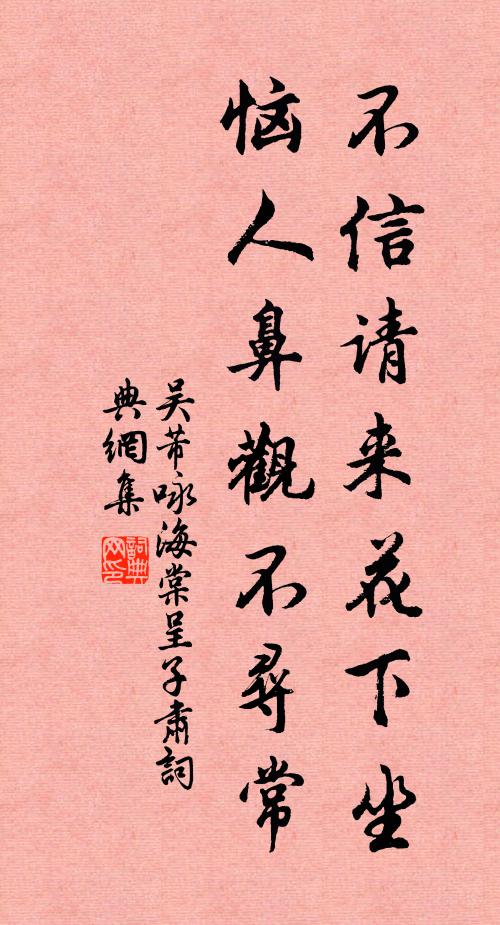 不信请来花下坐
恼人鼻觀不尋常
吴芾咏海棠呈子肅詞
典網集
詞典网印